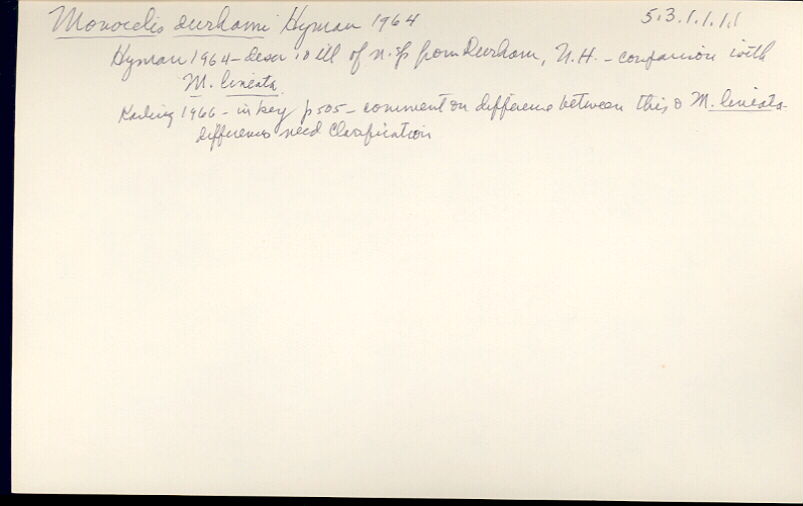 Monocelis durhami Hyman 1964 5.3.1.1.1.1
Hyman 1964 - descr & ill of n.sp from Durham, N.H. - comparison with
M. lineata.
Karling 1966 - in key p 505 - comment on difference between this & M. lineata -
differences need clarification